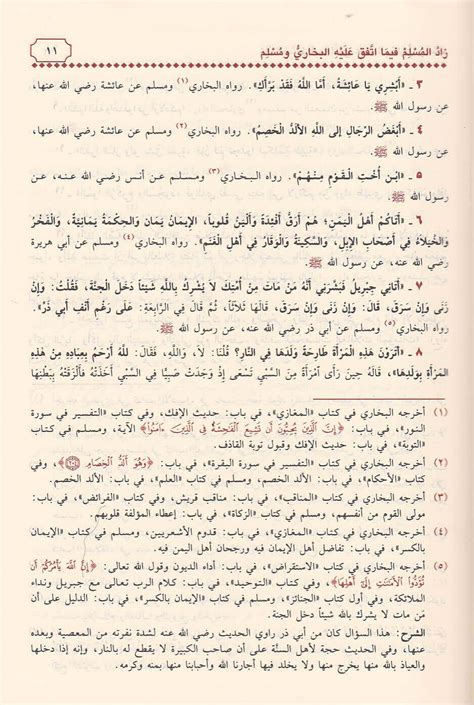 زادُ المُسْلِمْ فيمَا اتَّفَقَ عَلَيْهِ البخاريُّ ومُسْلِم
١١
٣ ـ «أَبْشِري يَا عَائِشَةُ، أَمَّا اللَّهُ فَقَدْ بَرَّأَكِ». رواه البخاري(١) ومسلم عن عائشة رضي الله عنها،
عن رسول الله ﷺ.
٤ ـ «أَبْغَضُ الرِّجَالِ إلى اللَّهِ الأَلَدُّ الْخَصِمُ». رواه البخاري(٢) ومسلم عن عائشة رضي الله عنها،
عن رسول الله ﷺ.
٥ ـ «ابْنُ أُخْتِ القَـوْمِ مِنْهُمْ». رواه البخاري(٣) ومسلم عن أنس رضي الله عنه، عن
رسول الله ﷺ.
٦ ـ «أَتَاكُمْ أَهْلُ الْيَمَنِ؛ هُمْ أَرَقُّ أَفْئِدَةً وَأَلْيَنُ قُلُوباً، الإِيمَانُ يَمَانٍ وَالحِكْمَةُ يَمَانِيَّةٌ، وَالْفَخْرُ
وَالْخُيَلَاءُ فِي أَصْحَابِ الإِبِلِ، وَالسَّكِينَةُ وَالْوَقَارُ فِي أَهْلِ الْغَنَمِ». رواه البخاري(٤) ومسلم عن أبي هريرة
رضي الله عنه، عن رسول الله ﷺ.
٧ ـ «أَتَانِي جِبْرِيلُ فَبَشَّرَنِي أَنَّهُ مَنْ مَاتَ مِنْ أُمَّتِكَ لَا يُشْرِكُ بِاللَّهِ شَيْئاً دَخَلَ الْجَنَّةَ، فَقُلْتُ: وَإِنْ
زَنَى وَإِنْ سَرَقَ، قَالَ: وَإِنْ زَنَى وَإِنْ سَرَقَ، قَالَهَا ثَلَاثاً، ثُمَّ قَالَ فِي الرَّابِعَةِ: عَلَى رَغْمِ أَنْفِ أَبِي
ذَرٍّ». رواه البخاري(٥) ومسلم عن أبي ذر رضي الله عنه، عن رسول الله ﷺ.
٨ ـ «أَتَرَوْنَ هَذِهِ المَرْأَةَ طَارِحَةً وَلَدَهَا فِي النَّارِ؟ قُلْنَا: لَا، وَاللَّهِ، فَقَالَ: لَلَّهُ أَرْحَمُ بِعِبَادِهِ مِنْ هَذِهِ
المَرْأَةِ بِوَلَدِهَا»، قَالَهُ حِينَ رَأَى امْرَأَةً مِنَ السَّبْيِ تَسْعَى إِذْ وَجَدَتْ صَبِيًّا فِي السَّبْيِ أَخَذَتْهُ فَأَلْزَقَتْهُ بِبَطْنِهَا
(١) أخرجه البخاري في كتاب «المغازي»، في باب: حديث الإفك، وفي كتاب «التفسير في سورة
النور»، في باب: ﴿إِنَّ ٱلَّذِينَ يُحِبُّونَ أَن تَشِيعَ ٱلْفَٰحِشَةُ فِى ٱلَّذِينَ ءَامَنُوا۟﴾ الآية، ومسلم في كتاب
«التوبة»، في باب: حديث الإفك وقبول توبة القاذف.
(٢) أخرجه البخاري في كتاب «التفسير في سورة البقرة»، في باب: ﴿وَهُوَ أَلَدُّ ٱلْخِصَامِ﴾، وفي كتاب
«الأحكام»، في باب: الألد الخصم، ومسلم في كتاب «العلم»، في باب: الألد الخصم.
(٣) أخرجه البخاري في كتاب «المناقب»، في باب: مناقب قريش، وفي كتاب «الفرائض»، في باب:
مولى القوم من أنفسهم، ومسلم في كتاب «الزكاة»، في باب: إعطاء المؤلفة قلوبهم.
(٤) أخرجه البخاري في كتاب «المغازي»، في باب: قدوم الأشعريين، ومسلم في كتاب «الإيمان
بالكسر»، في باب: تفاضل أهل الإيمان ورجحان أهل اليمن فيه.
(٥) أخرجه البخاري في كتاب «الاستقراض»، في باب: أداء الديون وقول الله تعالى: ﴿إِنَّ ٱللَّهَ يَأْمُرُكُمْ أَن
تُؤَدُّوا۟ ٱلْأَمَٰنَٰتِ إِلَىٰٓ أَهْلِهَا﴾، وفي كتاب «التوحيد»، في باب: كلام الرب تعالى مع جبريل ونداء
الملائكة، وفي أول كتاب «الجنائز»، ومسلم في كتاب «الإيمان بالكسر»، في باب: الدليل على أن
مَن مات لا يشرك بالله شيئاً دخل الجنة.
الشرح: هذا السؤال كان من أبي ذر راوي الحديث رضي الله عنه لشدة نفرته من المعصية وبعده
عنها، وفي هذا الحديث حجة لأهل السنة على أن صاحب الكبيرة لا يقطع له بالنار، وإنه إذا دخلها
والعياذ بالله منها يخرج منها ولا يخلد فيها أجارنا الله وأحبابنا منها بمنه وكرمه.